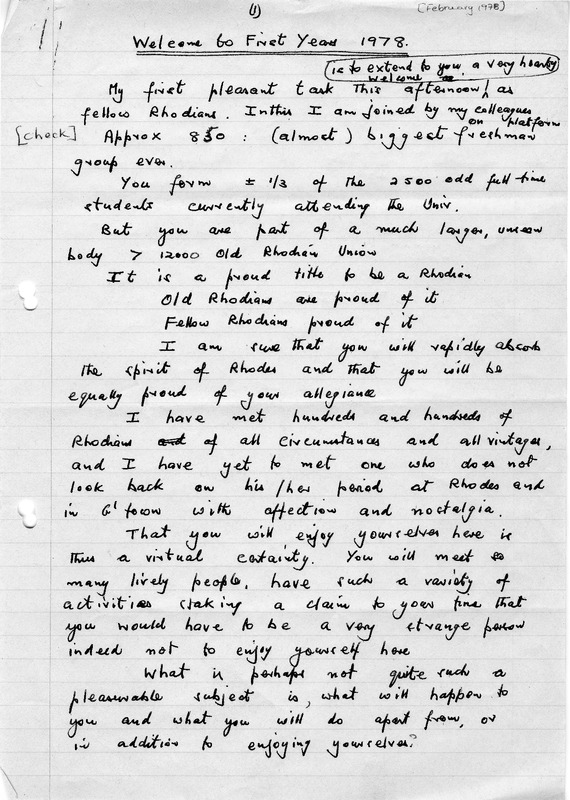 (1)
[February 1978]
Welcome to First Years 1978.
is to extend to you, a very hearty
welcome
My first pleasant task this afternoon, as
fellow Rhodians. In this I am joined by my colleagues
on platform
[check] Approx 850 : (almost) biggest freshman
group ever.
You form ± 1/3 of the 2500 odd full-time
students currently attending the Univ.
But you are part of a much larger, unseen
body > 12000 Old Rhodian Union
It is a proud title to be a Rhodian
Old Rhodians are proud of it
Fellow Rhodians proud of it
I am sure that you will rapidly absorb
the spirit of Rhodes and that you will be
equally proud of your allegiance
I have met hundreds and hundreds of
Rhodians and of all circumstances and all vintages,
and I have yet to met one who does not
look back on his/her period at Rhodes and
in G'town with affection and nostalgia.
That you will enjoy yourselves here is
thus a virtual certainty. You will meet so
many lively people, have such a variety of
activities staking a claim to your time that
you would have to be a very strange person
indeed not to enjoy yourself here
What is perhaps not quite such a
pleasurable subject is, what will happen to
you and what you will do apart from, or
in addition to enjoying yourselves?